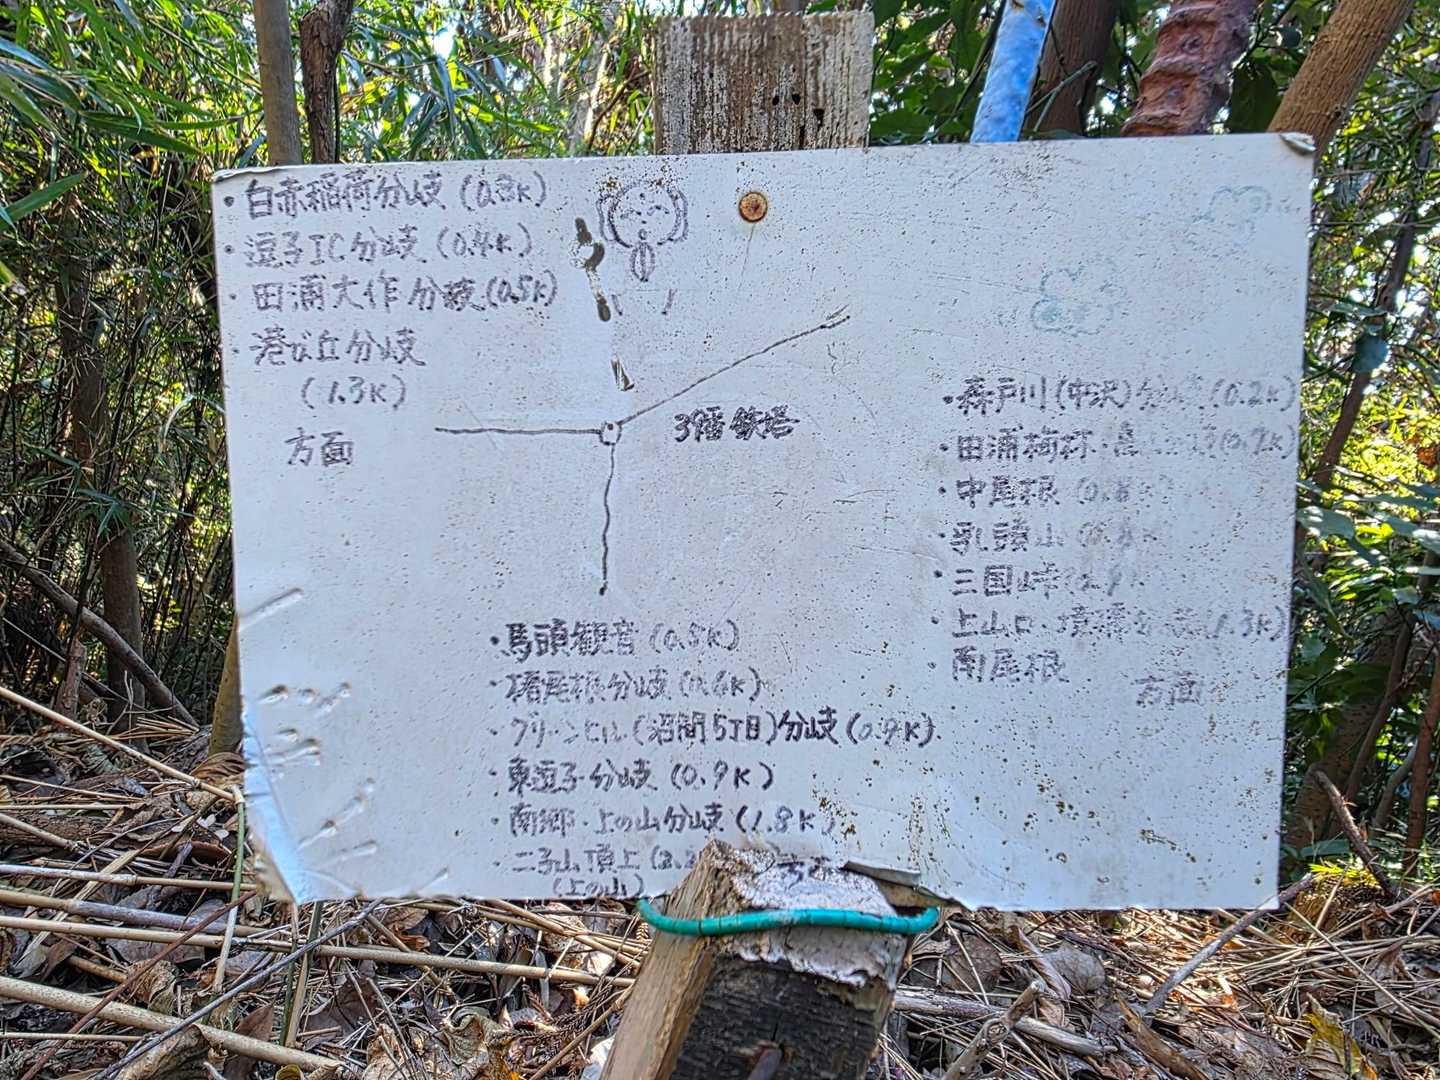 ・白赤稲荷分岐(0.3K)
・逗子IC分岐(0.4K)
・田浦大作分岐(0.5K)
・港が丘分岐
(1.3K)
方面
39番鉄塔
・森戸川(中沢)分岐(0.2K)
・田浦梅林・
・中尾根(0.8K)
・乳頭山
・三国峠
・上山口・境界分岐(1.3K)
・南尾根
方面
・馬頭観音(0.5K)
尾根分岐(0.6K)
・グリーンヒル(沼間5丁目)分岐(0.9K)
・東逗子分岐(0.9K)
・南郷・上の山分岐(1.8K)
・二子山頂上
(上の山)